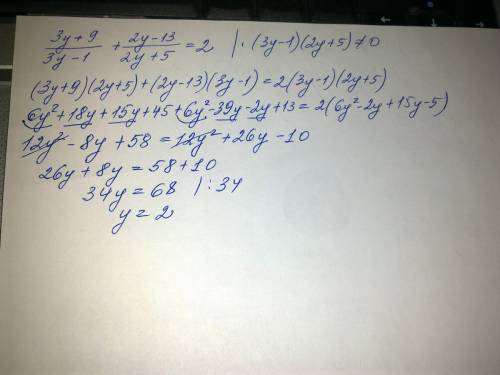 (3y+9)/(3y-1) + (2y-13)/(2y+5) = 2 | · (3y-1)(2y+5) ≠ 0
(3y+9)(2y+5)+(2y-13)(3y-1)=2(3y-1)(2y+5)
6y²+18y+15y+45+6y²-39y-2y+13=2(6y²-2y+15y-5)
12y²-8y+58=12y²+26y-10
26y+8y=58+10
34y=68 |:34
y=2